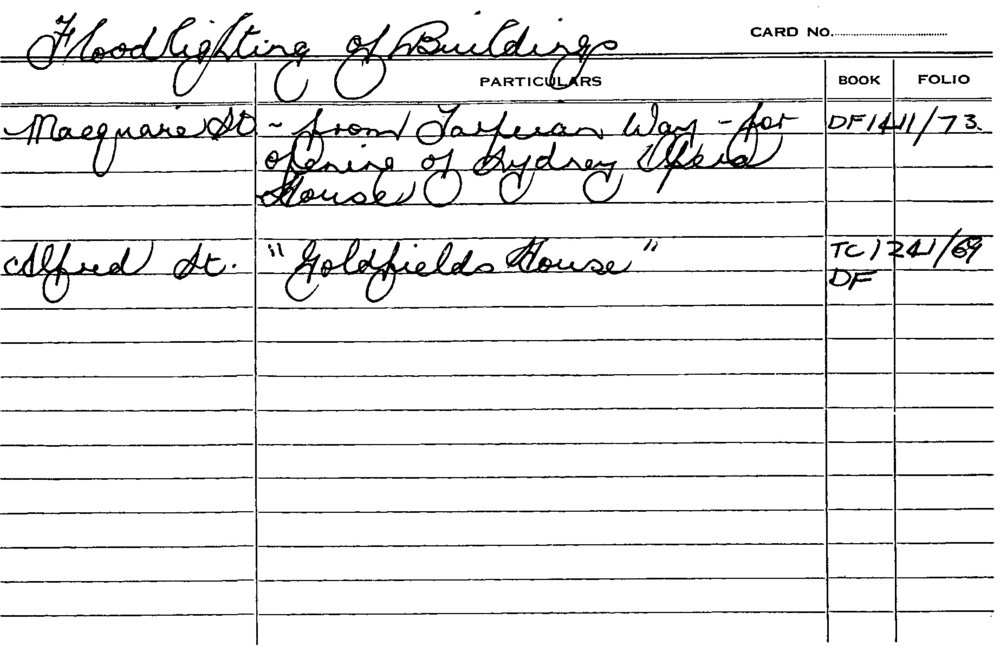 Floodlighting of Buildings CARD No.
PARTICULARS BOOK FOLIO
Macquarie St - from Tarpeian Way - for DF1411/73.
opening of Sydney Opera
House
Alfred St. "Goldfields House" TC1241/69
DF